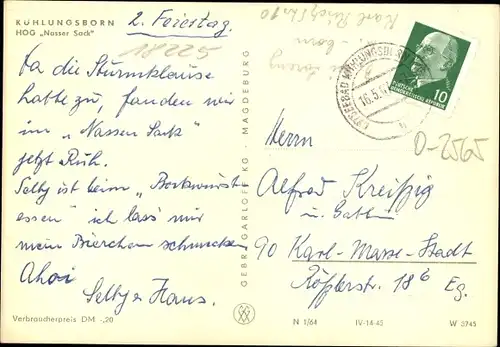 KÜHLUNGSBORN
HOG „Nasser Sack"
2. Feiertag.
18225
Da die Sturmklause
hatte zu, fanden wir
im „Nassen Sack"
jetzt Ruh.
Selly ist beim „Bockwurst
essen" ich lass' mir
mein Bierchen schmecken
Ahoi
Selly & Hans.
Verbraucherpreis DM -,20
GEBR. GARLOFF KG · MAGDEBURG
Karl
OSTSEEBAD KÜHLUNGSBORN
16.5.
DEUTSCHE
DEMOKRATISCHE REPUBLIK
10
D-2565
Herrn
Alfred Kreißig
u. Gattin
90 Karl-Marx-Stadt
Rößlerstr. 18b Eg.
N 1/64 IV-14-45 W 3745